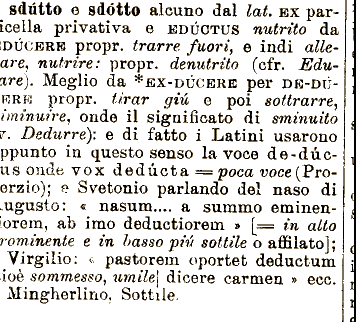 sdútto e sdótto alcuno dal lat. EX par-
icella privativa e EDÚCTUS nutrito da
DÚCERE propr. trarre fuori, e indi alle-
are, nutrire: propr. denutrito (cfr. Edu-
are). Meglio da *EX-DÚCERE per DE-DÚ-
ERE propr. tirar giú e poi sottrarre,
iminuire, onde il significato di sminuito
v. Dedurre): e di fatto i Latini usarono
ppunto in questo senso la voce de-dúc-
us onde vox dedúcta = poca voce (Pro-
erzio); e Svetonio parlando del naso di
ugusto: « nasum.... a summo eminen-
iorem, ab imo deductiorem » [= in alto
rominente e in basso piú sottile o affilato];
Virgilio: « pastorem oportet deductum
ioè sommesso, umile] dicere carmen » ecc.
Mingherlino, Sottile.